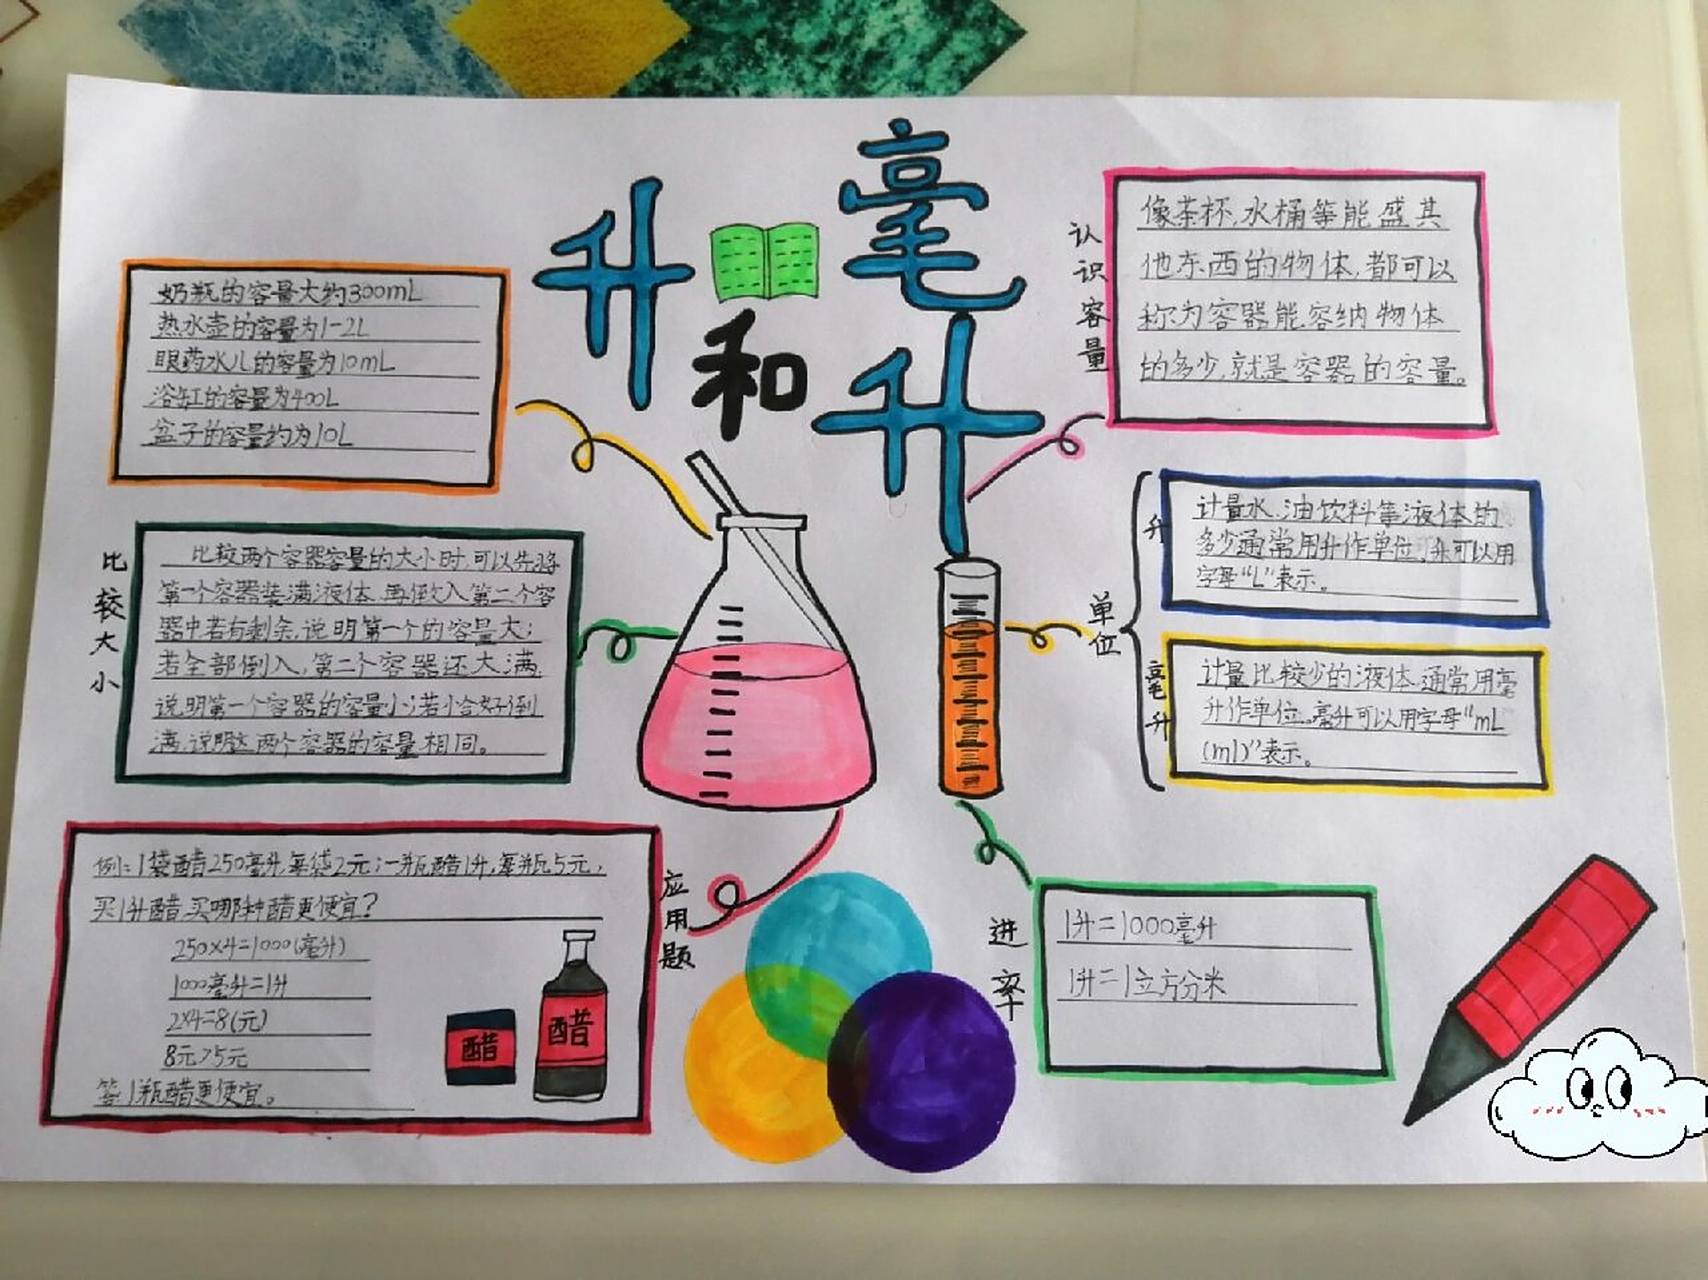 升和毫升
奶瓶的容量大约300mL
热水壶的容量为1-2L
眼药水儿的容量为10mL
浴缸的容量为400L
盆子的容量约为10L
比较大小
比较两个容器容量的大小时,可以先将
第一个容器装满液体,再倒入第二个容
器中若有剩余,说明第一个的容量大;
若全部倒入,第二个容器还大满,
说明第一个容器的容量小;若恰好倒
满,说明这两个容器的容量相同。
应用题
例:1袋醋250毫升,每袋2元;一瓶醋1升,每瓶5元,
买1升醋,买哪种醋更便宜?
250×4=1000(毫升)
1000毫升=1升
2×4=8(元)
8元>5元
答:1瓶醋更便宜。
醋
醋
认识容量
像茶杯,水桶等能盛其
他东西的物体,都可以
称为容器能容纳物体
的多少,就是容器的容量。
单位
升
计量水、油饮料等液体的
多少通常用升作单位,升可以用
字母“L”表示。
毫升
计量比较少的液体,通常用毫
升作单位。毫升可以用字母“mL
(ml)”表示。
进率
1升=1000毫升
1升=1立方分米